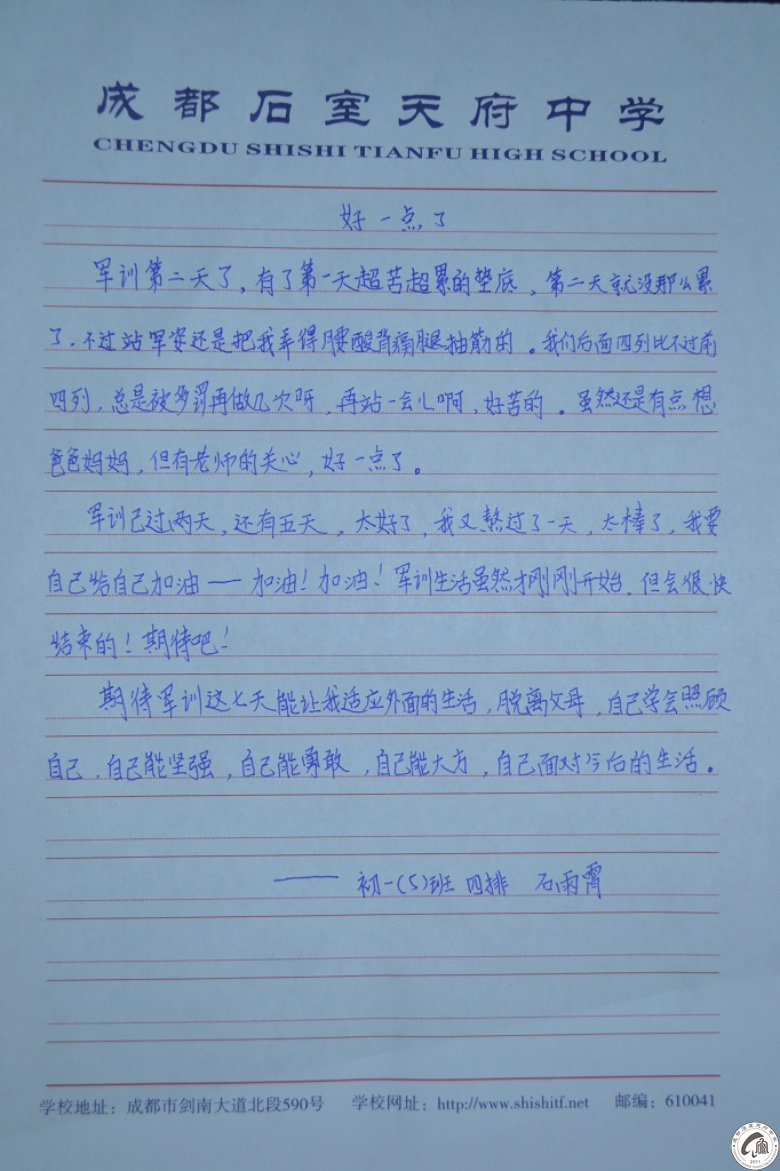 成都石室天府中学
CHENGDU SHISHI TIANFU HIGH SCHOOL
好一点了
军训第二天了，有了第一天超苦超累的垫底，第二天就没那么累
了．不过站军姿还是把我弄得腰酸背痛腿抽筋的。我们后面四列比不过前
四列，总是被多罚再做几次呀，再站一会儿啊，好苦的。虽然还是有点想
爸爸妈妈，但有老师的关心，好一点了。
军训已过两天，还有五天，太好了，我又熬过了一天，太棒了，我要
自己给自己加油——加油！加油！军训生活虽然才刚刚开始，但会很快
结束的！期待吧！
期待军训这七天能让我适应外面的生活，脱离父母，自己学会照顾
自己，自己能坚强，自己能勇敢，自己能大方，自己面对今后的生活。
——初一(5)班 四排 石雨霄
学校地址：成都市剑南大道北段590号 学校网址：http://www.shishitf.net 邮编：610041
2011